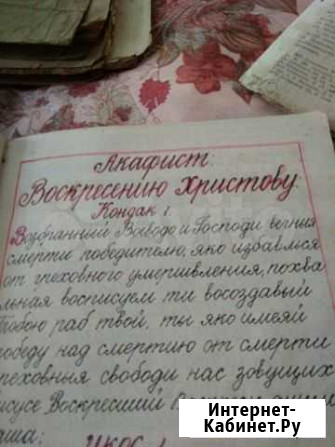 Акафист:
Воскресению Христову.
Кондак 1.
Возбранный Воеводо и Господи вечныя
смерти победителю, яко избавлся
от греховного умершвления, похва
льная восписуем ти восоздавый
тобою раб твой, ты яко имеяй
победу над смертию от смерти
греховныя свободи нас зовущих
Иисусе Воскресший
наша:
Икос 1
Интернет-
Кабинет.Ру